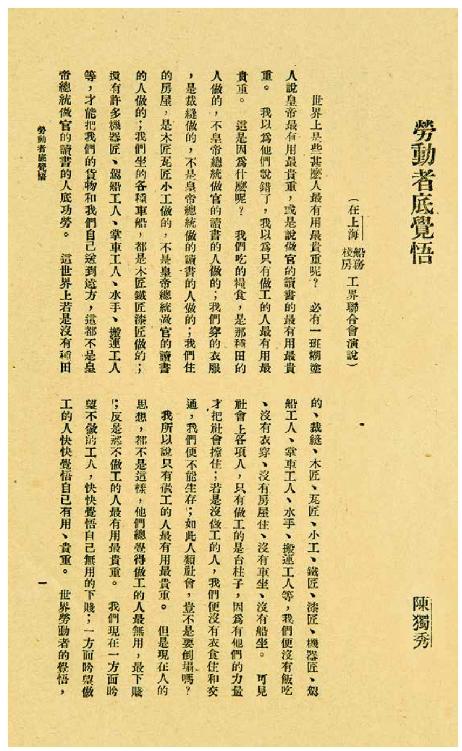 勞動者底覺悟
陳獨秀
（在上海船務棧房工界聯合會演說）
世界上是些甚麼人最有用最貴重呢？　必有一班糊塗
人說皇帝最有用最貴重，或是說做官的讀書的最有用最貴
重。　我以爲他們說錯了，我以爲只有做工的人最有用最
貴重。　這是因爲什麼呢？　我們吃的糧食，是那種田的
人做的，不是皇帝總統做官的讀書的人做的；我們穿的衣服
，是裁縫做的，不是皇帝總統做官的讀書的人做的；我們住
的房屋，是木匠瓦匠小工做的，不是皇帝總統做官的讀書
的人做的；我們坐的各種車船，都是木匠鐵匠漆匠做的；
還有許多機器匠、駕船工人、掌車工人、水手、搬運工人
等，才能把我們的貨物和我們自己送到遠方，這都不是皇
帝總統做官的讀書的人底功勞。　這世界上若是沒有種田
的、裁縫、木匠、瓦匠、小工、鐵匠、漆匠、機器匠、駕
船工人、掌車工人、水手、搬運工人等，我們便沒有飯吃
、沒有衣穿、沒有房屋住、沒有車坐、沒有船坐。　可見
社會上各項人，只有做工的是台柱子，因爲有他們的力量
才把社會撐住；若是沒做工的人，我們便沒有衣食住和交
通，我們便不能生存；如此人類社會，豈不是要倒塌嗎？
我所以說只有做工的人最有用最貴重。　但是現在人的
思想，都不是這樣，他們總覺得做工的人最無用，最下賤
；反是那不做工的人最有用最貴重。　我們現在一方面盼
望不做工的人，快快覺悟自己無用的下賤；一方面盼望做
工的人快快覺悟自己有用、貴重。　世界勞動者的覺悟，
勞動者底覺悟
一